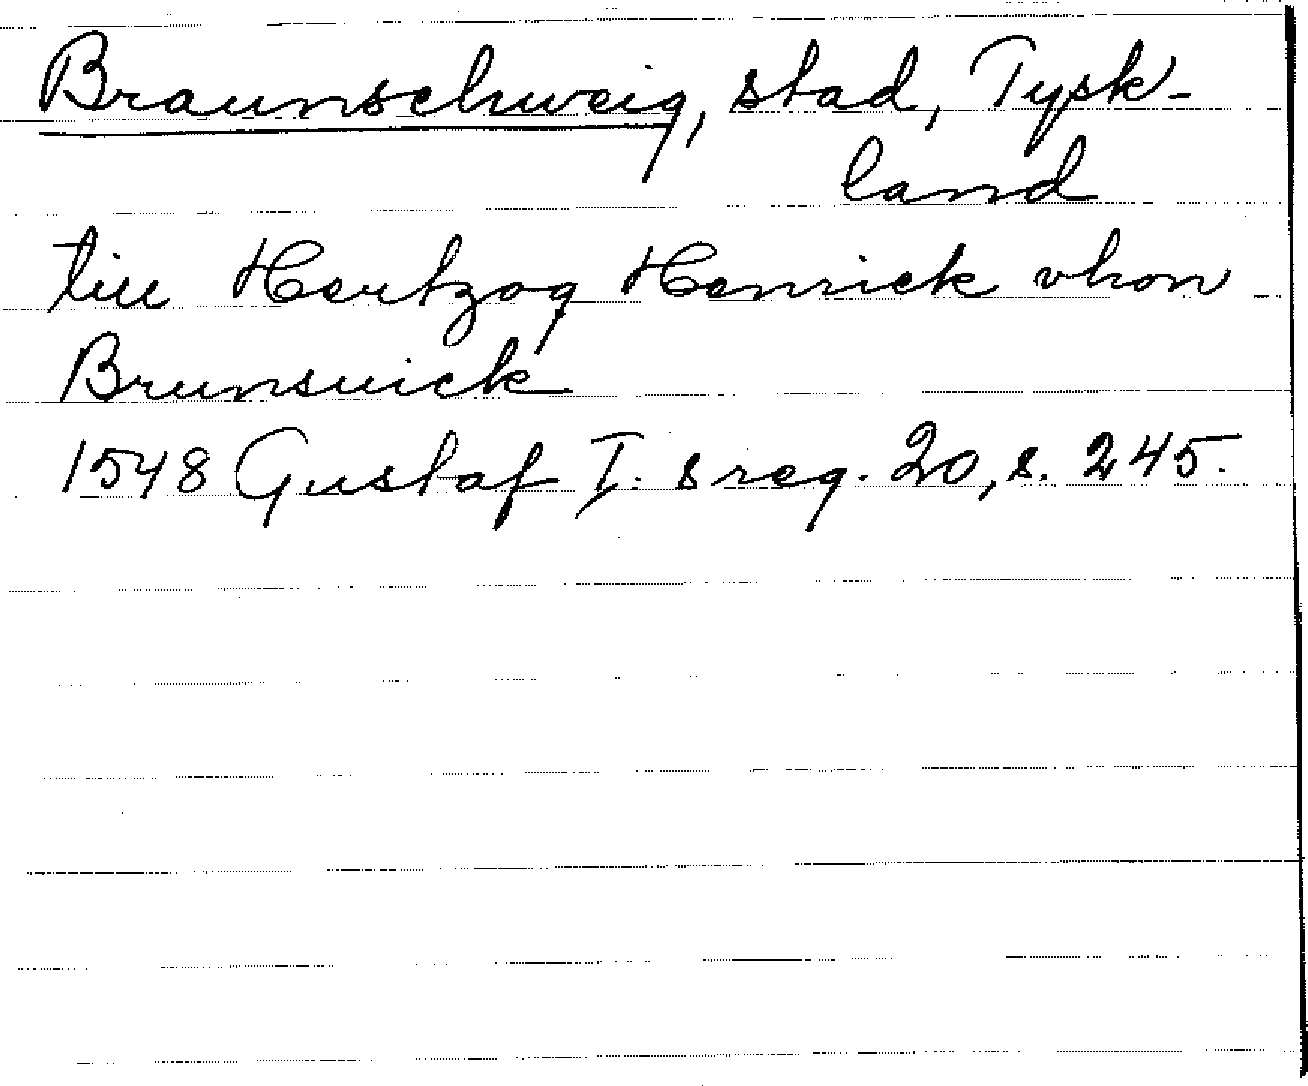 Braunschweig, stad, Tysk-
land
till Hertzog Henrick vhon
Brunsuick
1548 Gustaf I. s reg. 20, s. 245.